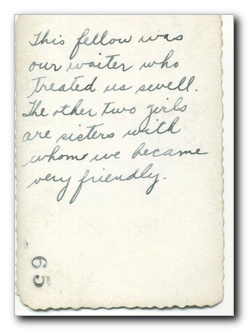 This fellow was
our waiter who
treated us swell.
The other two girls
are sisters with
whome we became
very friendly.
65